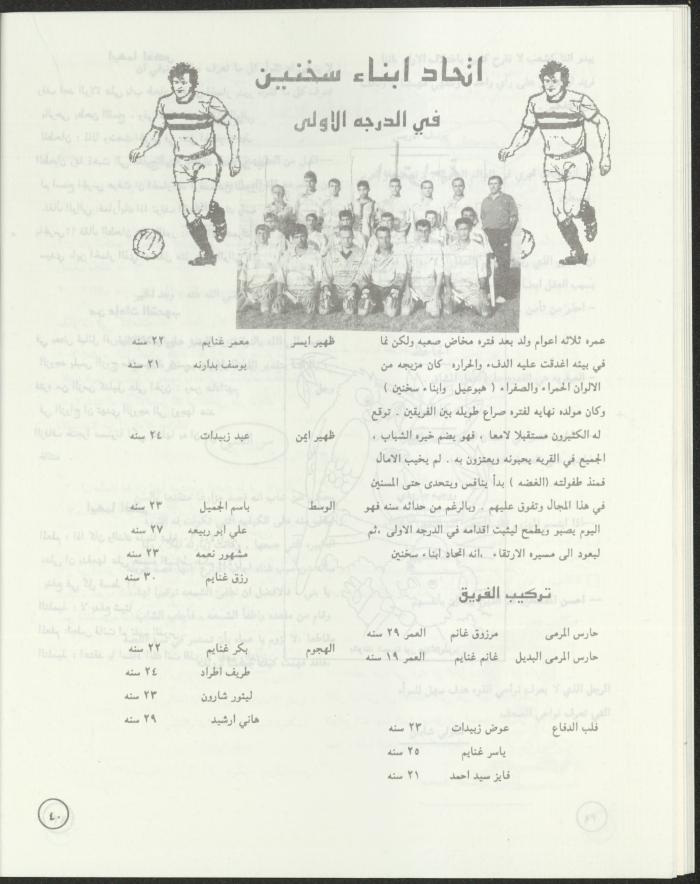 اتحاد ابناء سخنين
في الدرجه الاولى
عمره ثلاثه اعوام ولد بعد فتره مخاض صعبه ولكن نما
في بيته اغدقت عليه الدفء والحراره كان مزيجه من
الالوان الحمراء والصفراء ( هبوعيل وابناء سخنين )
وكان مولده نهايه لفتره صراع طويله بين الفريقين . توقع
له الكثيرون مستقبلا لامعا ، فهو يضم خيره الشباب ،
الجميع في القريه يحبونه ويعتزون به . لم يخيب الامال
فمنذ طفولته ( الغضه ) بدأ ينافس ويتحدى حتى المسنين
في هذا المجال وتفوق عليهم . وبالرغم من حداثه سنه فهو
اليوم يصبو ويطمح ليثبت اقدامه في الدرجه الاولى ،ثم
ليعود الى مسيره الارتقاء .انه اتحاد ابناء سخنين
تركيب الفريق
حارس المرمى مرزوق غانم العمر ٢٩ سنه
حارس المرمى البديل غانم غنايم العمر ١٩ سنه
قلب الدفاع عوض زبيدات ٢٣ سنه
ياسر غنايم ٢٥ سنه
فايز سيد احمد ٢١ سنه
ظهير ايسر معمر غنايم ٢٢ سنه
يوسف بدارنه ٢١ سنه
ظهير ايمن عيد زبيدات ٢٤ سنه
الوسط باسم الجميل ٢٣ سنه
علي ابو ربيعه ٢٧ سنه
مشهور نعمه ٢٣ سنه
رزق غنايم ٣٠ سنه
الهجوم بكر غنايم ٢٢ سنه
طريف اطراد ٢٤ سنه
ليئور شارون ٢٣ سنه
هاني ارشيد ٢٩ سنه
٤٠